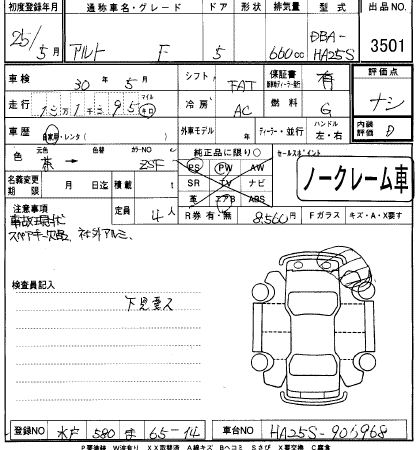 初度登録年月 通称車名・グレード ドア 形状 排気量 型式 出品NO
25/5月 アルト F 5 660cc DBA-HA25S 3501
車検 30年 5月 シフト FAT 保証書 有 評価点
走行 マイル キロ 冷房 AC 燃料 G ナシ
車歴 自家用・レンタ 外車モデル 年 ディーラー・並行 ハンドル 左・右 内装評価 D
色 元色 茶 → 色替 カラーNO ZSF 純正品に限り○ セールスポイント
名義変更期限 月 日迄 積載 t PS PW AW
SR TV ナビ
革 エアB ABS
ノークレーム車
注意事項 定員 4人 R券 有・無 8,560円 Fガラス キズ・A・X要す
事故現状
スペアキー欠品、社外アルミ、
検査員記入
下見要ス
登録NO 水戸 580 ま 65-14 車台NO HA25S-905968
P要塗装 W波有り XX取替済 A線キズ Bヘコミ Sさび X要交換 C腐食